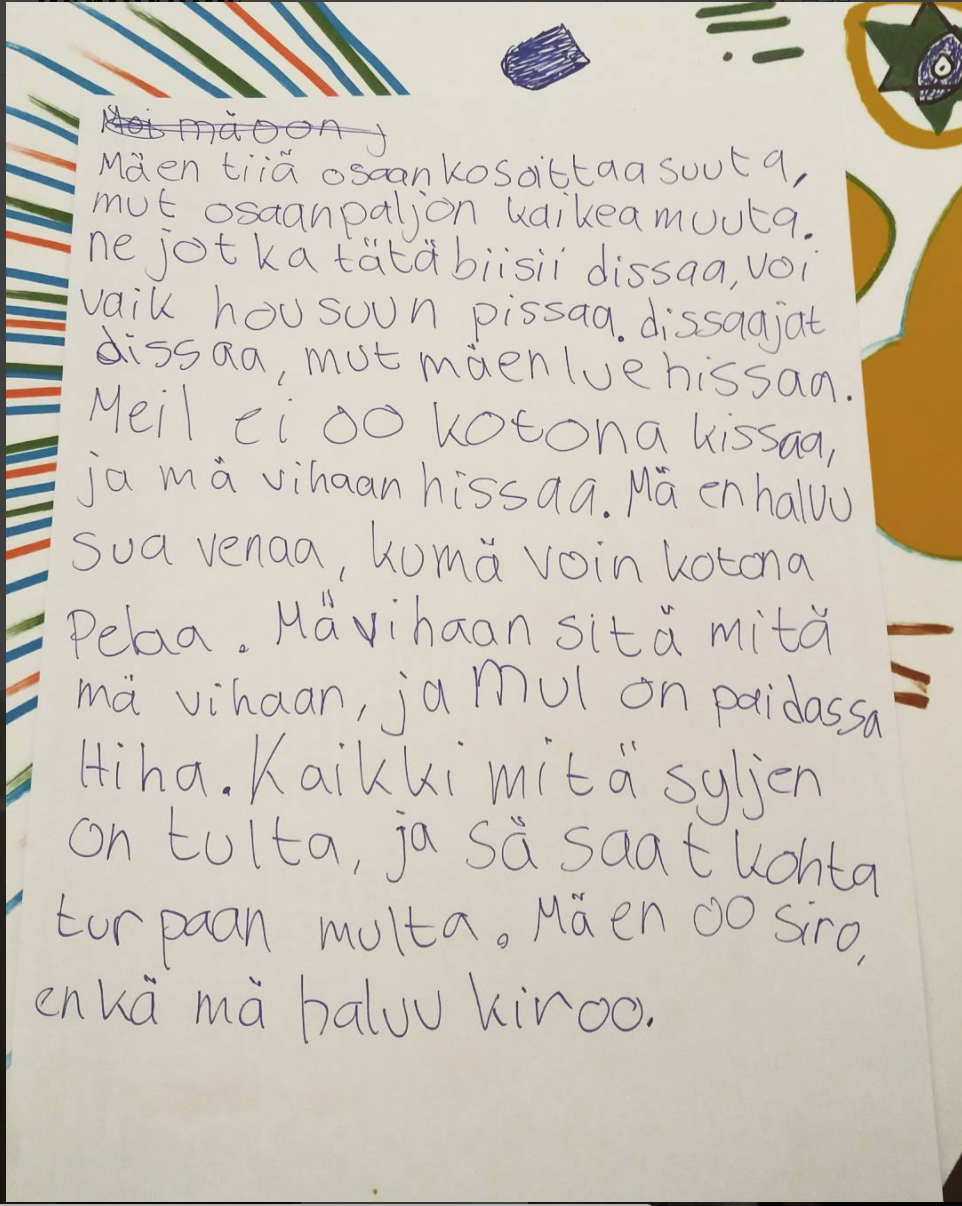 Moi mä oon j
Mä en tiiä osaanko soittaa suuta,
mut osaan paljon kaikea muuta.
ne jotka tätä biisii dissaa, voi
vaik housuun pissaa. dissaajat
dissaa, mut mä en lue hissaa.
Meil ei oo kotona kissaa,
ja mä vihaan hissaa. Mä en haluu
sua venaa, ku mä voin kotona
Pelaa. Mä vihaan sitä mitä
mä vihaan, ja Mul on paidassa
Hiha. Kaikki mitä syljen
on tulta, ja sä saat kohta
turpaan multa. Mä en oo siro,
enkä mä haluu kiroo.